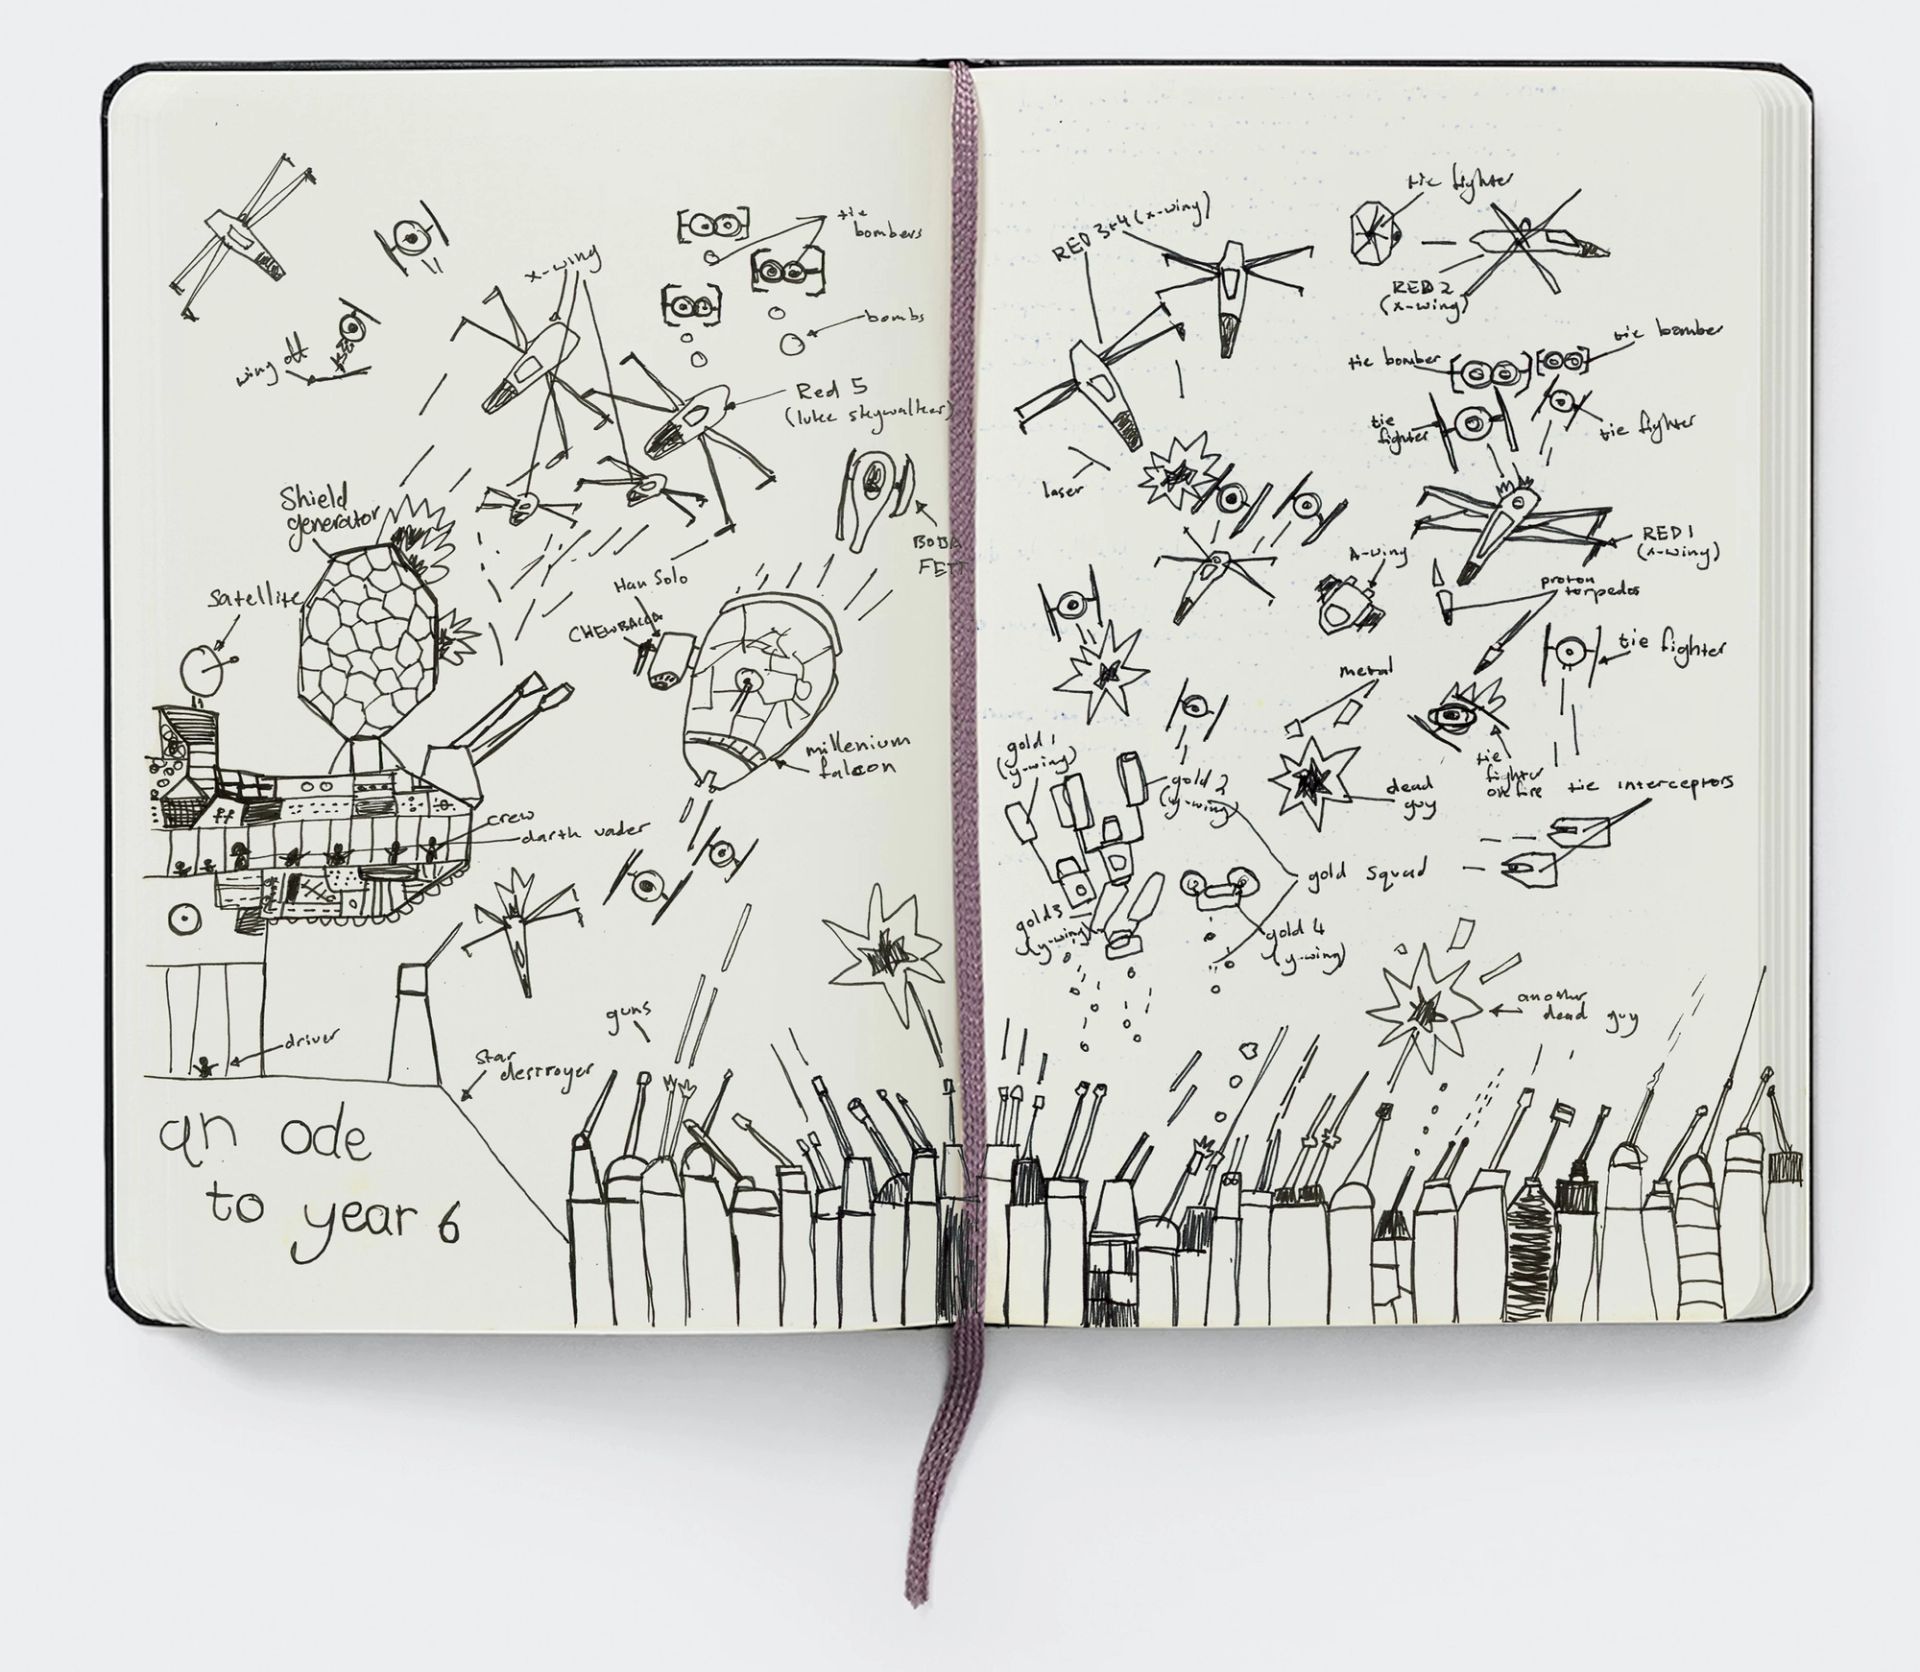 x-wing
tie
bombers
wing off
bombs
Red 5
(luke skywalker)
Shield
generator
BOBA
FETT
Han Solo
CHEWBACCA
Satellite
millenium
falcon
crew
darth vader
guns
driver
Star
destroyer
an ode
to year 6
tie fighter
RED 3+4 (x-wing)
RED 2
(x-wing)
tie bomber
tie bomber
tie
fighter
tie fighter
laser
RED 1
(x-wing)
A-wing
proton
torpedos
tie fighter
metal
gold 1
(y-wing)
gold 2
(y-wing)
dead
guy
tie
fighter
on fire
tie interceptors
gold squad
gold 3
(y-wing)
gold 4
(y-wing)
another
dead guy